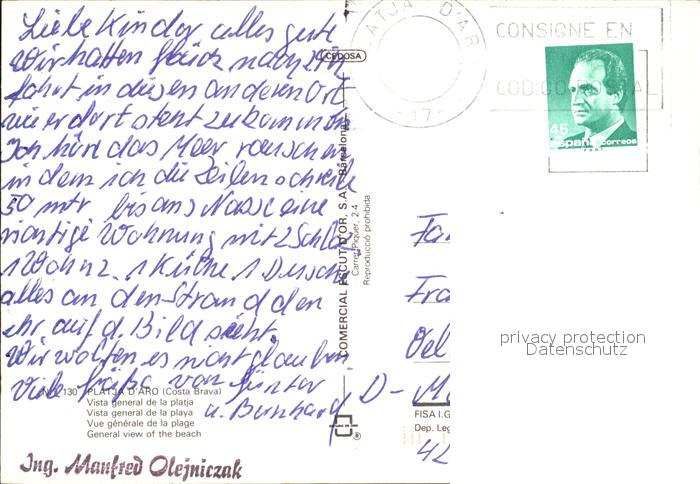 Liebe Kinder alles gute
Wir hatten
fahrt in diesen anderen Ort
wie er dort steht zu kommen
Ich höre das Meer rauschen
in dem ich die Zeilen schreibe
50 mtr bis ans Nasse eine
Wohnung mit 2 Schlaf
1 Wohnz. 1 Küche 1 Dusche
alles an den Strand den
ihr auf d. Bild sieht.
Wir wollten es nicht glauben
Viele von Günter
u. Burnhard
N.º 130 PLATJA D'ARO (Costa Brava)
Vista general de la platja
Vista general de la playa
Vue générale de la plage
General view of the beach
Ing. Manfred Olejniczak
CEDOSA
COMERCIAL ESCUT D'OR, S.A. - Barcelona
Carrer Piquer, 2-4
Reproducció prohibida
PLATJA D'AR
-17-
CONSIGNE EN
CODIGO AL
45
españa correos
Fa
Fra
Oel
D-
FISA I.G
Dep. Leg
42
privacy protection
Datenschutz